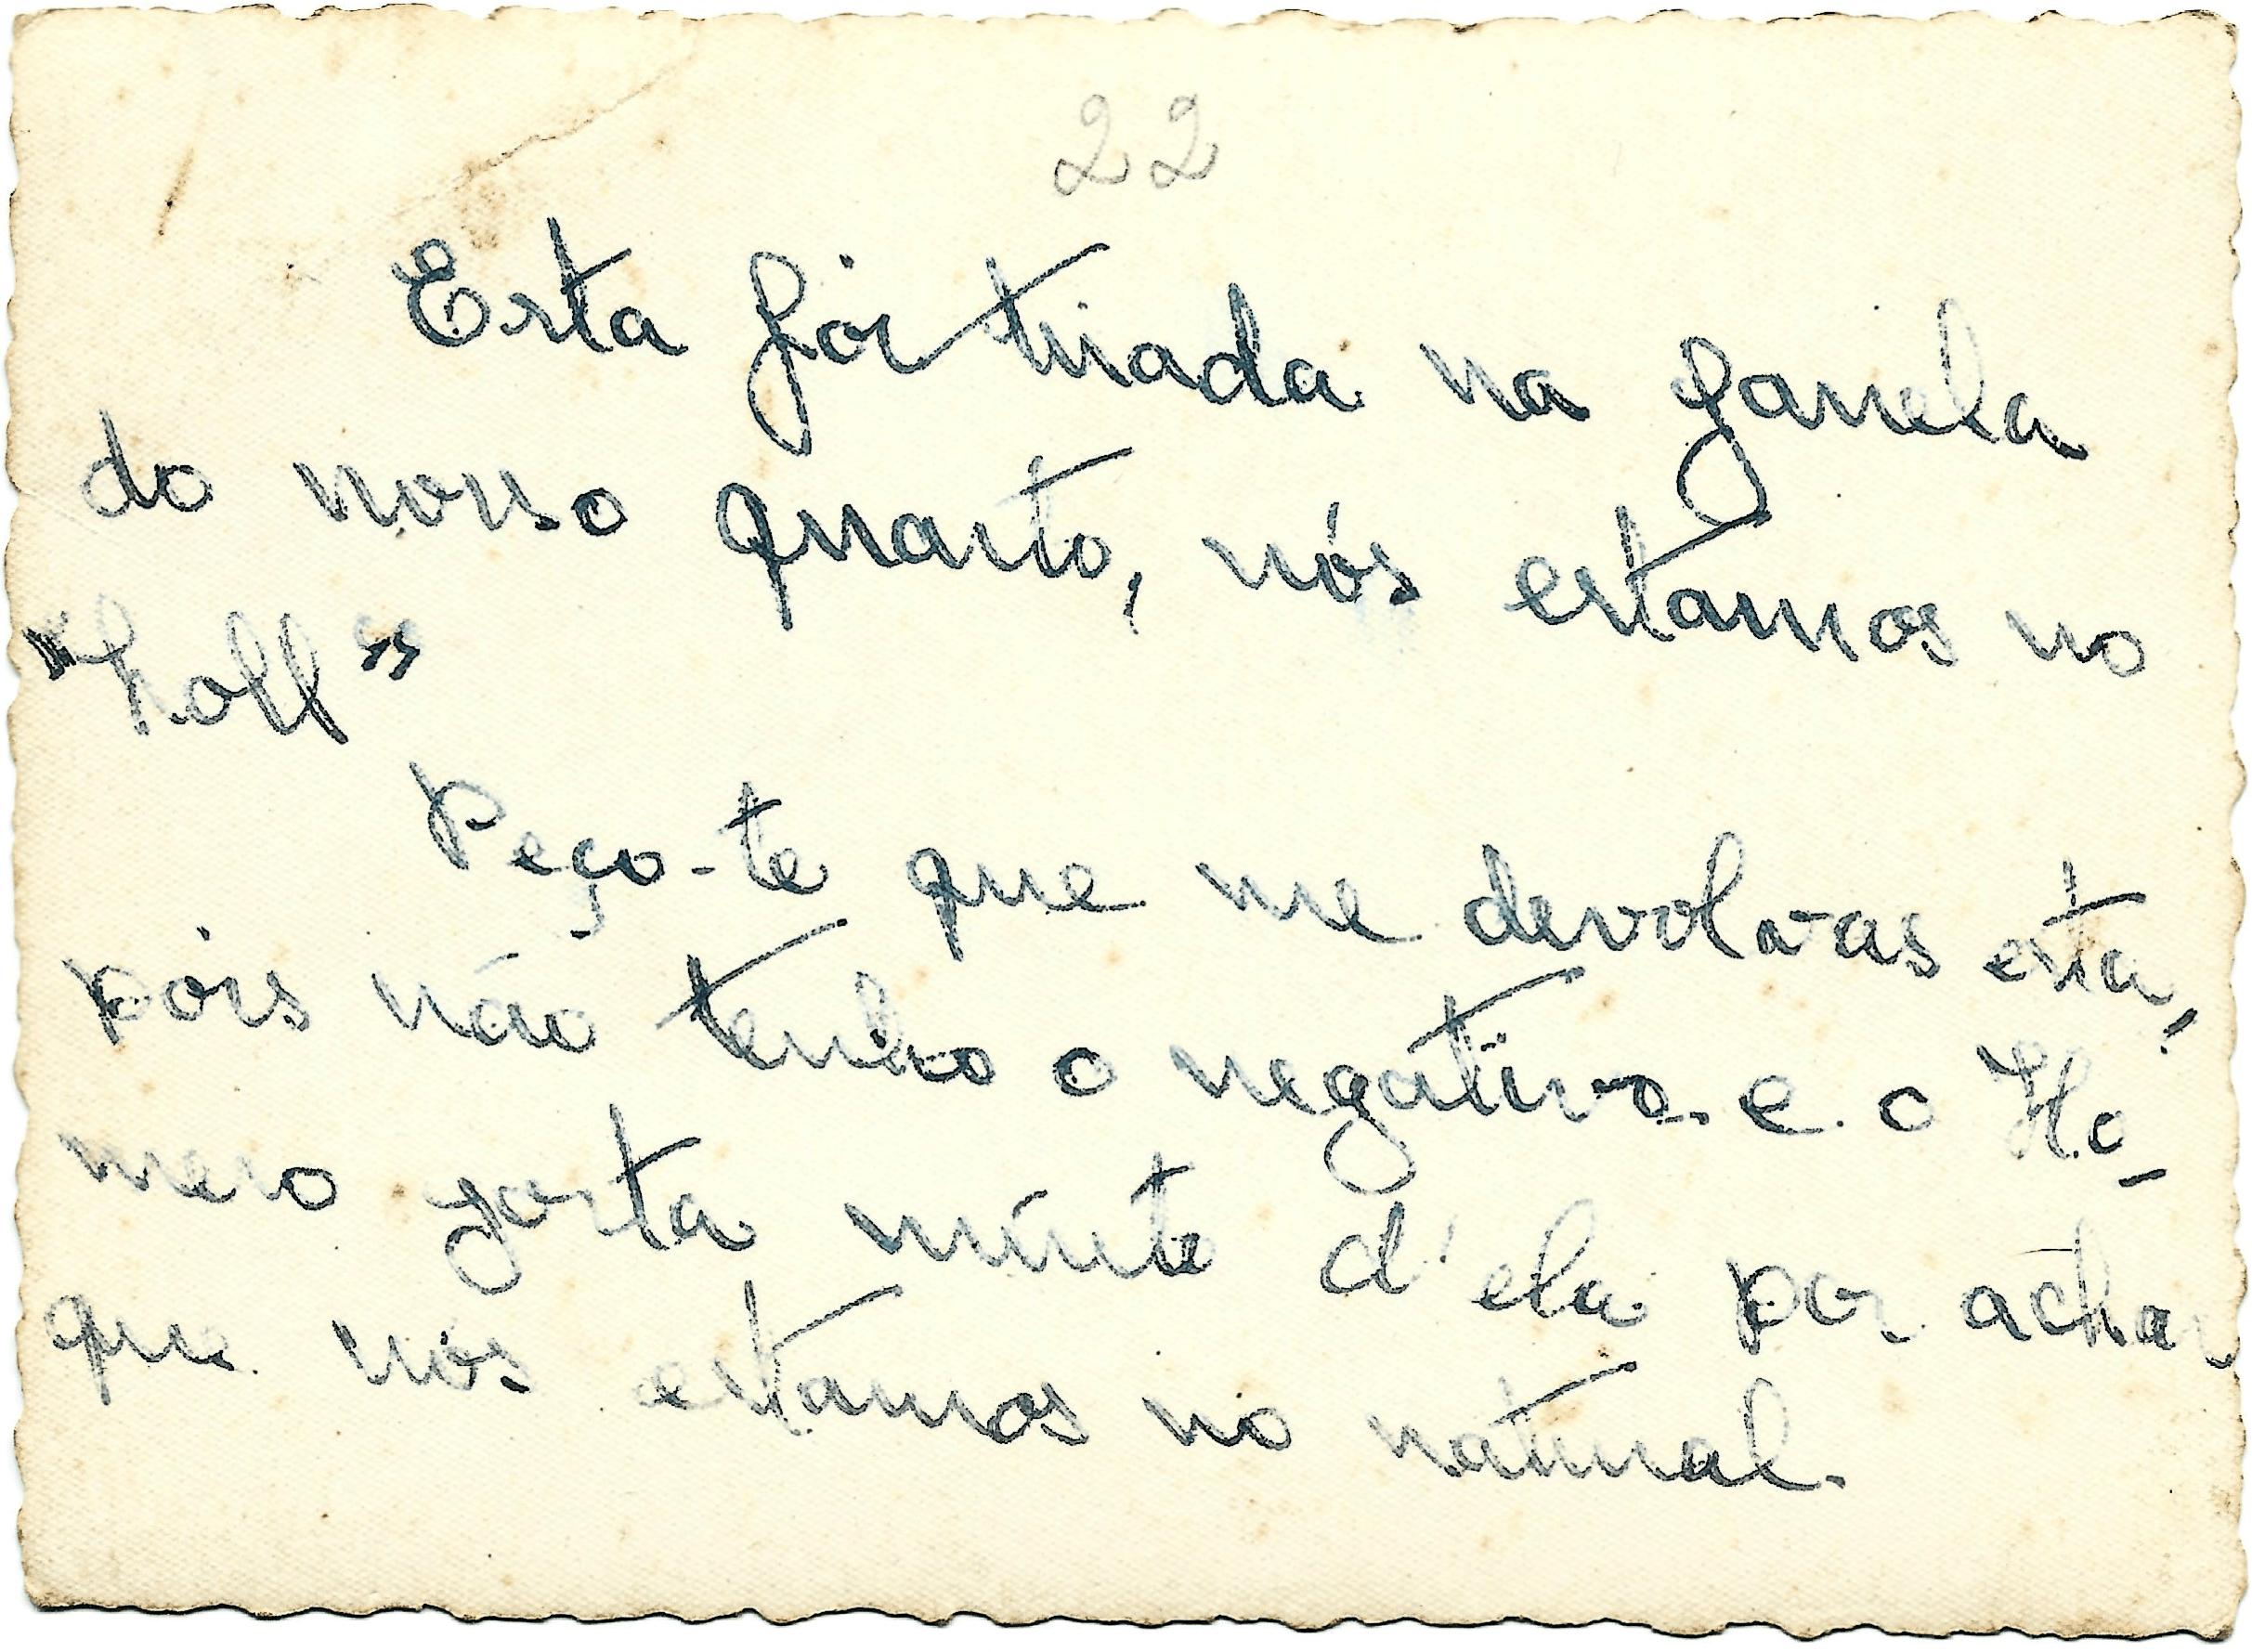 22
Esta foi tirada na janela
do nosso quarto, nós estamos no
"hall"
Peço-te que me devolvas esta,
pois não tenho o negativo e o Ho-
mero gosta muito d'ela por achar
que nós estamos no natural.